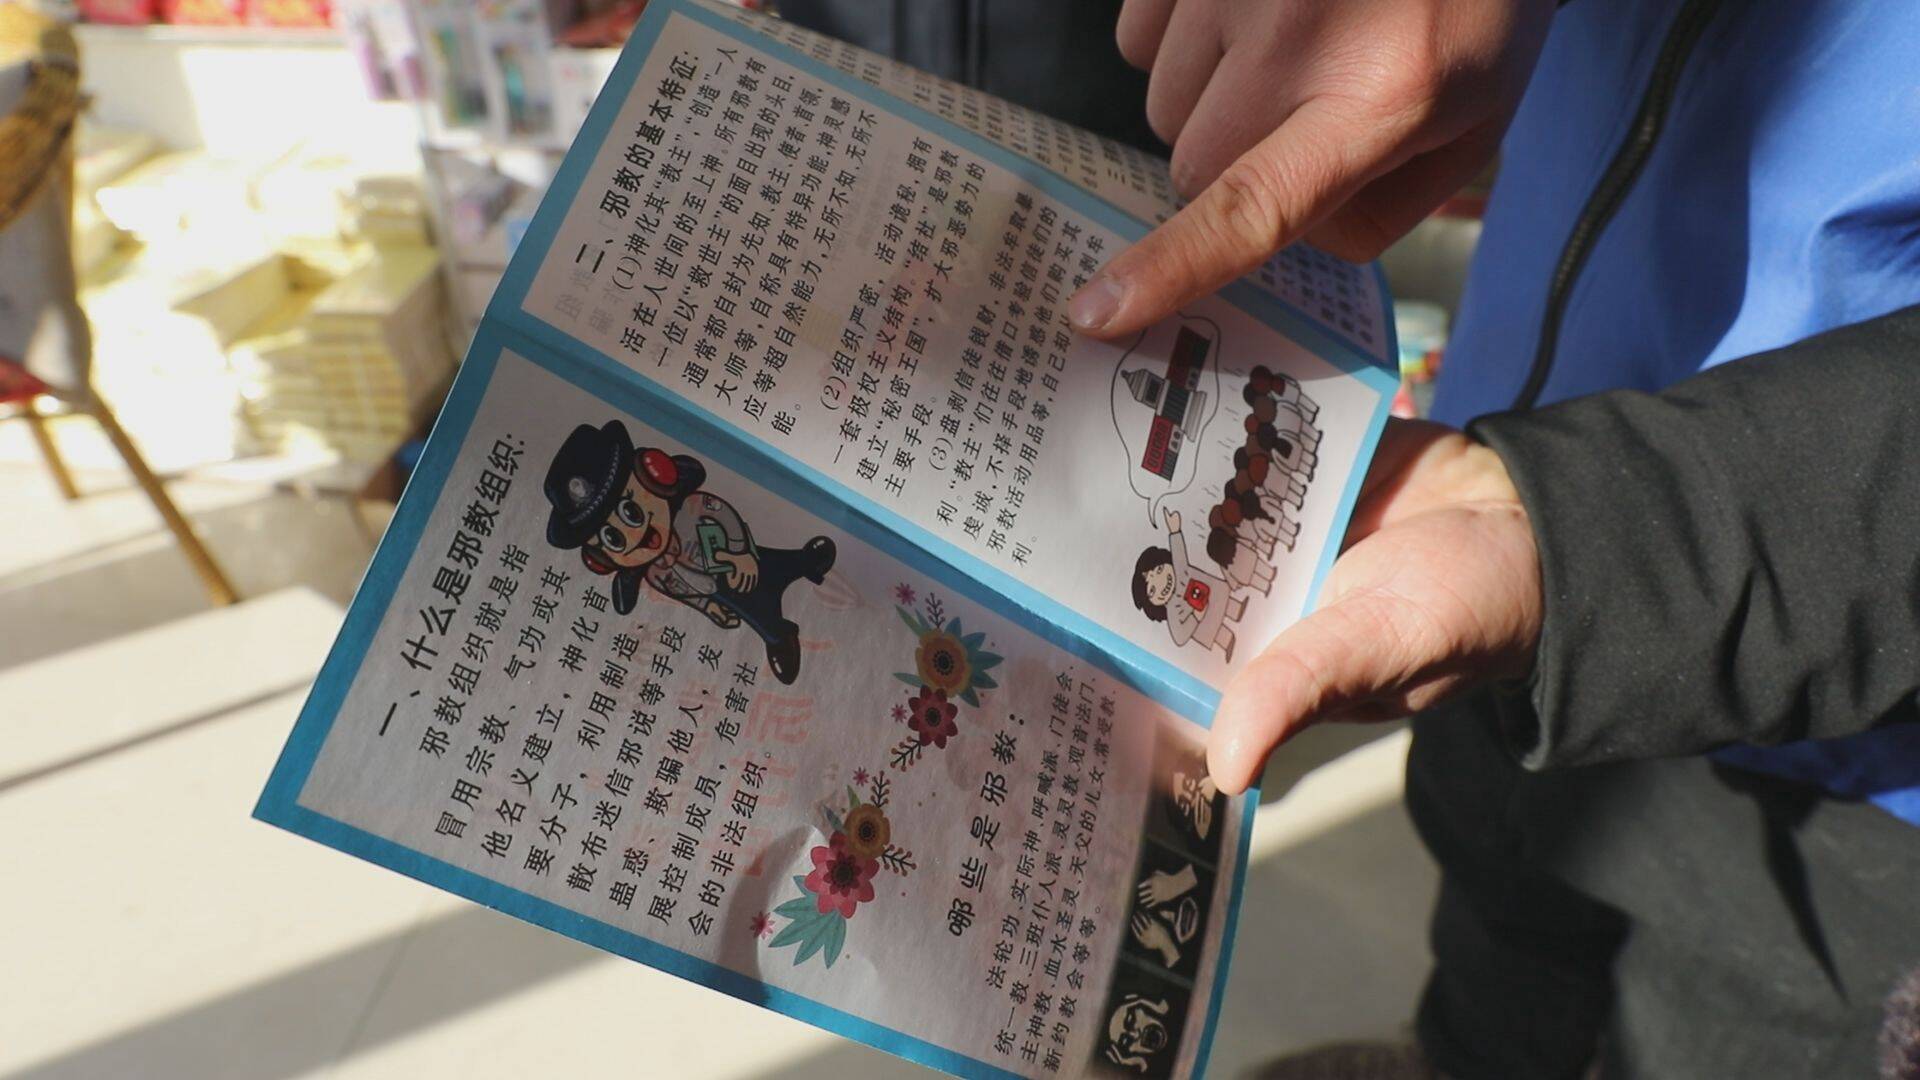 一、什么是邪教组织:
邪教组织就是指
冒用宗教、气功或其
他名义建立，神化首
要分子，利用制造、
散布迷信邪说等手段
蛊惑、欺骗他人，发
展控制成员，危害社
会的非法组织。
哪些是邪教：
法轮功、实际神、呼喊派、门徒会、
统一教、三班仆人派、灵灵教、观音法门、
主神教、血水圣灵、天父的儿女、常受教、
新约教会等等。
二、邪教的基本特征:
(1)神化其“教主”,“创造”一人
活在人世间的至上神。所有邪教有
一位以“救世主”的面目出现的头目,
通常都自封为先知、教主、使者、首领,
大师等,自称具有特异功能,神灵感
应等超自然能力,无所不知、无所不
能。
(2)组织严密，活动诡秘,拥有
一套极权主义结构。“结社”是邪教
建立“秘密王国”,扩大邪恶势力的
主要手段。
(3)盘剥信徒钱财，非法牟取暴
利。“教主”们往往借口考验信徒们的
虔诚,不择手段地诱惑他们购买其
邪教活动用品等,自己却
利。